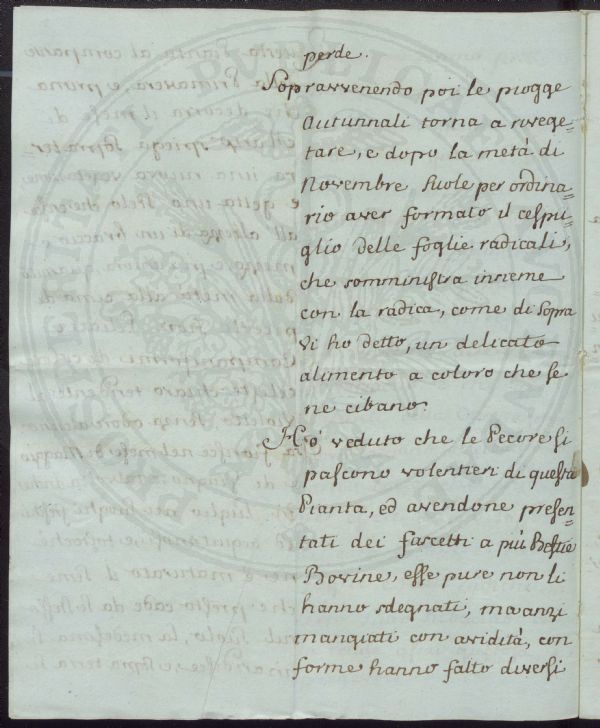 perde.
Sopravvenendo poi le piogge
Autunnali torna a rivege-
tare, e dopo la metà di
Novembre suole per ordina-
rio aver formato il cespu-
glio delle foglie radicali,
che somministra insieme
con la radica, come di sopra
vi ho detto, un delicato
alimento a coloro che se
ne cibano.
Hò veduto che le Pecore si
pascono volentieri di questa
Pianta, ed avendone presen-
tati dei fascetti a più Bestie
Bovine, esse pure non li
hanno sdegnati, ma anzi
mangiati con avidità, con
forme hanno fatto diversi